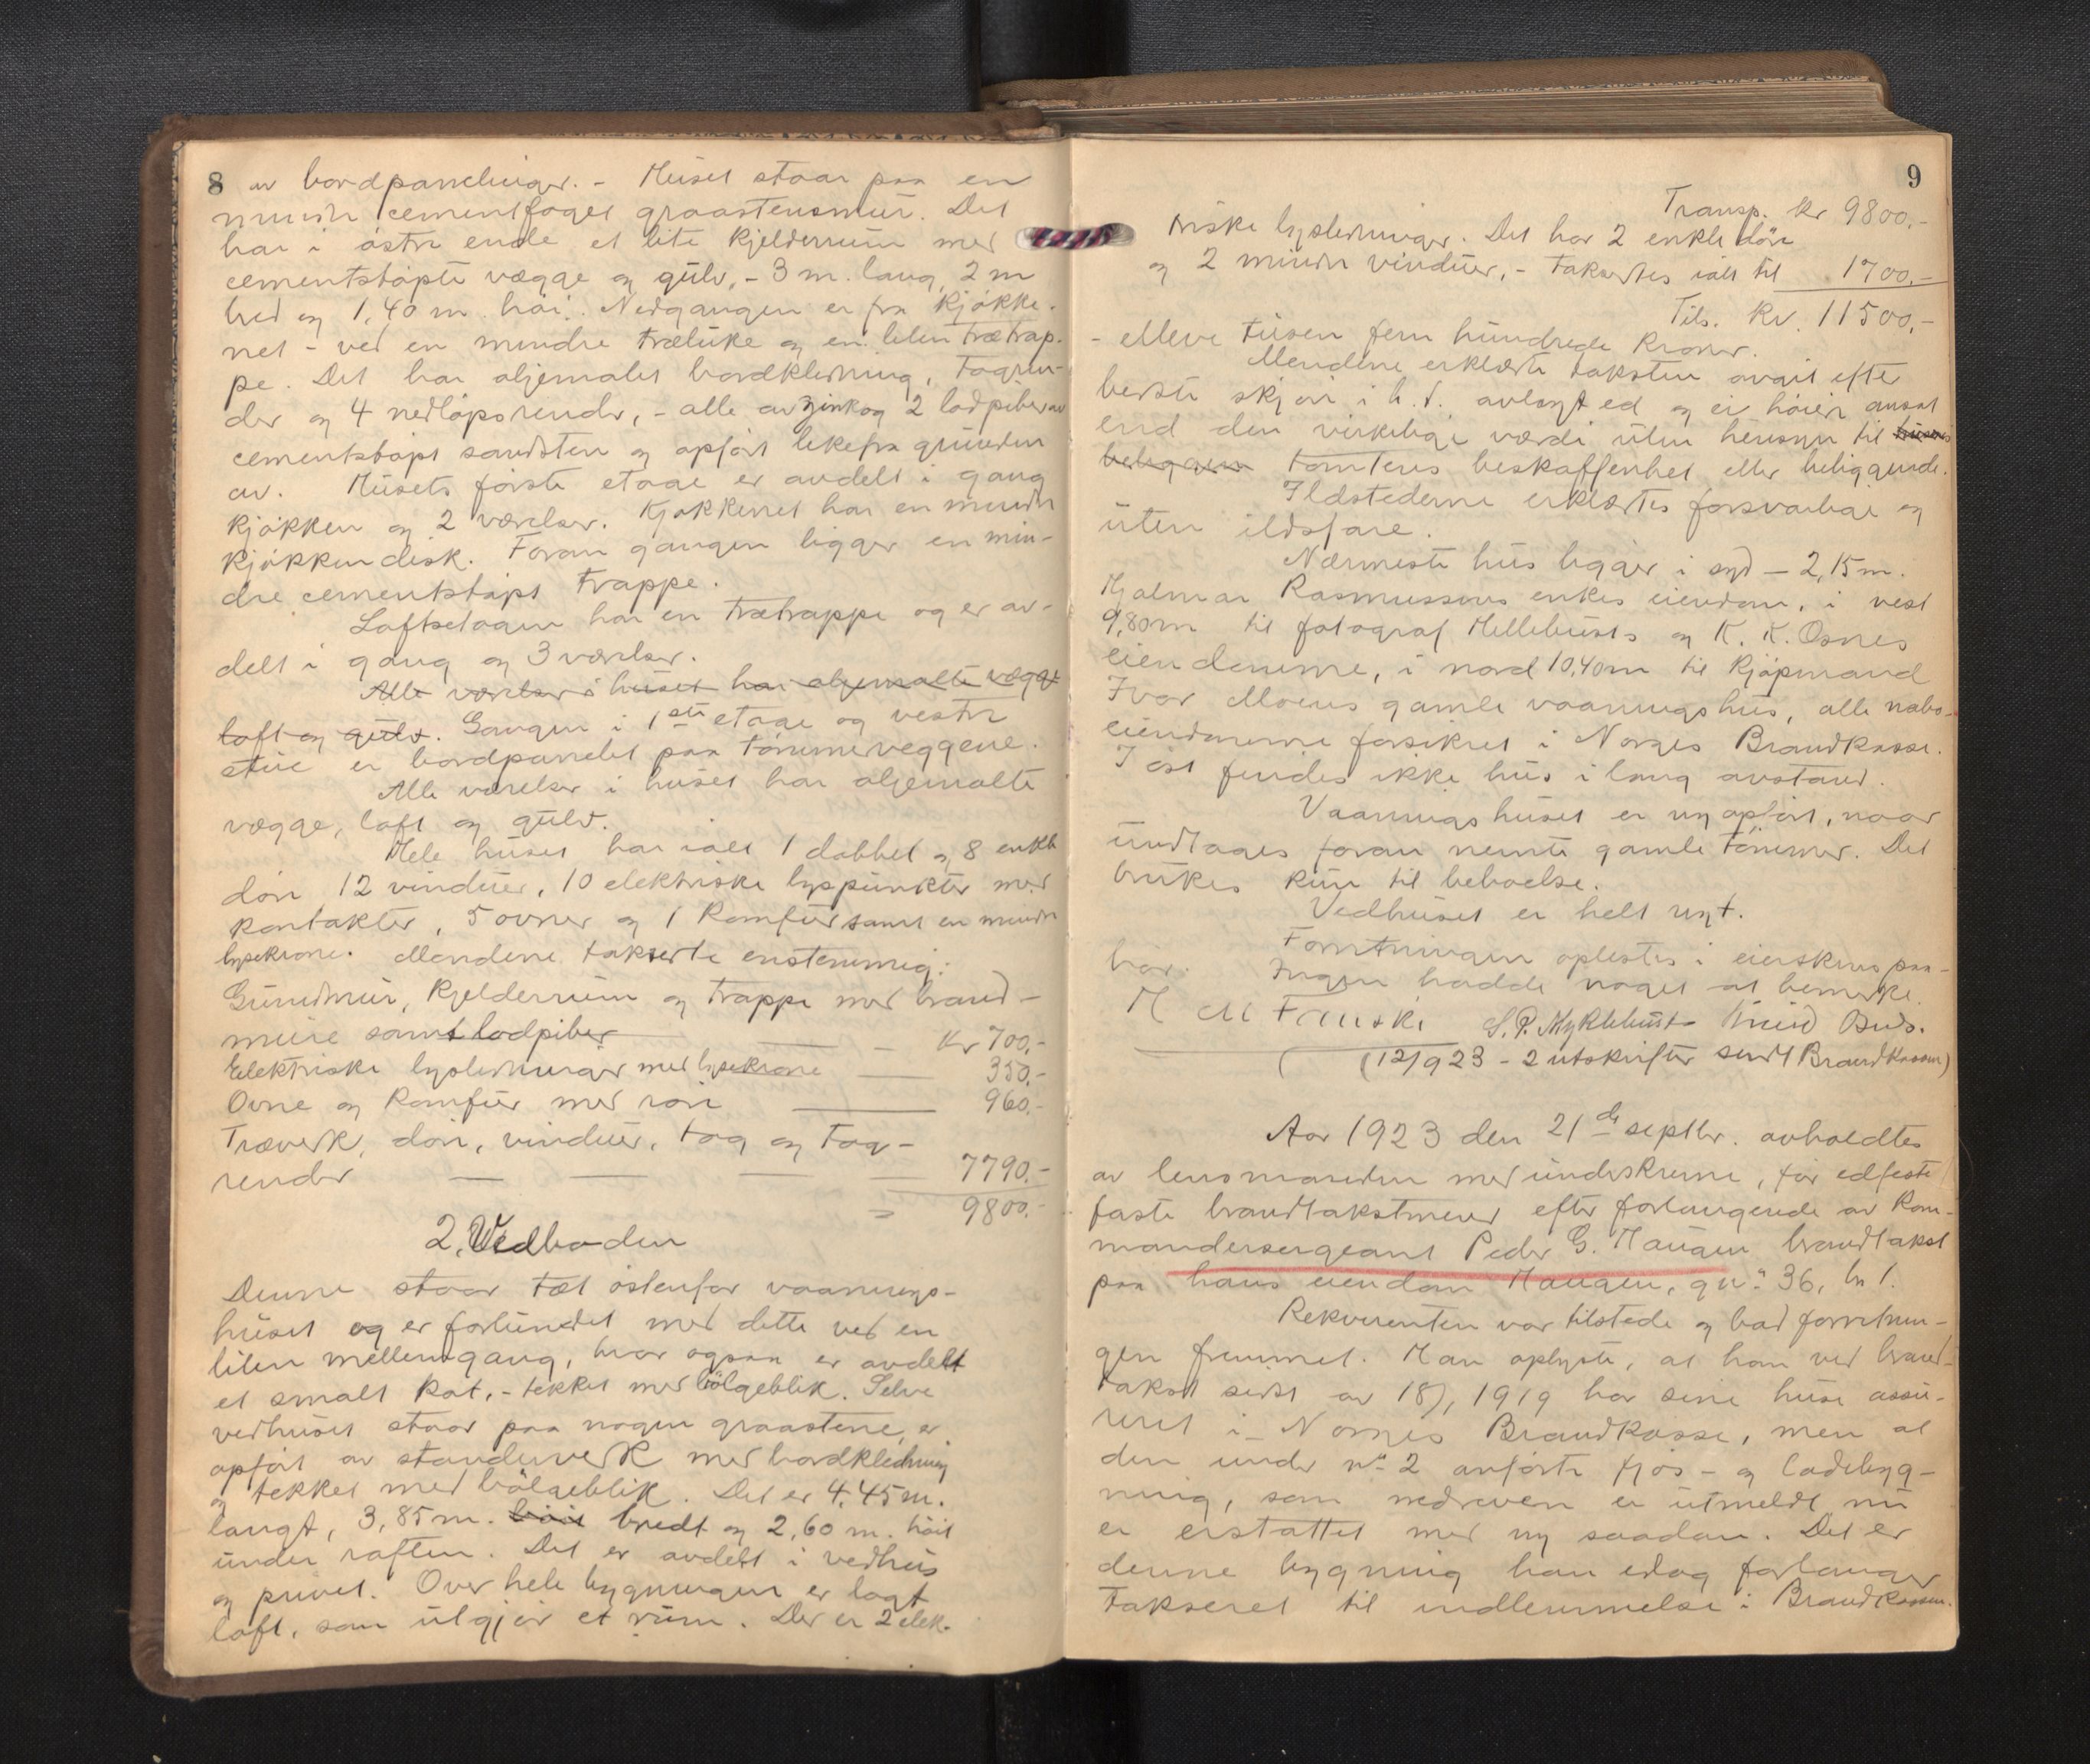 8 av bordpanelinger. - Huset staar paa en
mindre cementfuget graastensmur. Det
har i østre ende et lite kjelderrum med
cementstøpte vægge og gulv, - 3 m. lang, 2 m
bred og 1,40 m. høi. Nedgangen er fra kjøkke-
net - ved en mindre træluke og en liten trætrap-
pe. Det har oljemalet bordklædning, tagren-
der og 4 nedløpsrender, - alle av zink og 2 lodpiber av
cementstøpt sandsten og opført like fra grunden
av. Husets første etage er avdelt i gang
kjøkken og 2 værelser. Kjøkkenet har en mindre
kjøkkendisk. Foran gangen ligger en min-
dre cementstøpt trappe.
Loftsetagen har en trætrappe og er av-
delt i gang og 3 værelser.
Alle værelser i huset har oljemalte vægge
loft og gulv. Gangen i 1ste etage og vestre
stue er bordpanelet paa tømmerveggene.
Alle værelser i huset har oljemalte
vægge, loft og gulv.
Hele huset har ialt 1 dobbel og 8 enkle
dør 12 vinduer, 10 elektriske lyspunkter med
kontakter, 5 ovner og 1 komfur samt en mindre
lysekrone. Mendene takserte enstemmig:
Grundmur, kjelderrum og trappe med brand-
mure samt lodpiber - Kr 700,-
Elektriske lysledninger med lysekrone 350,-
Ovne og komfur med rør 960,-
Træverk, dør, vinduer, tag og tag-
render 7790,-
= 9800,-
2. Vedboden
Denne staar tæt østenfor vaanings-
huset og er forbundet med dette ved en
liten mellemgang, hvor ogsaa er avdelt
et smalt kot, - tekket med bølgeblik. Selve
vedhuset staar paa nogen graastene, er
opført av standerverk med bordklædning
og tekket med bølgeblik. Det er 4,45 m.
langt, 3,85 m. høit bredt og 2,60 m. høit
under raften. Det er avdelt i vedhus
og privet. Over hele bygningen er lagt
loft, som utgjør et rum. Der er 2 elek-
9
Transp. kr 9800,-
triske lysledninger. Det har 2 enkle dør
og 2 mindre vinduer, - Takseres ialt til 1700,-
Tils. kr. 11500,-
- elleve tusen fem hundrede kroner.
Mendene erklærte taksten avgit efter
beste skjøn i h. t. avlagt ed og ei høiere ansat
end den virkelige værdi uten hensyn til husets
beliggen tomtens beskaffenhet eller beliggende.
Ildstederne erklærtes forsvarlige og
uten ildsfare.
Nærmeste hus ligger i syd - 2,15 m.
Hjalmar Rasmussens enkes eiendom, i vest
9,80 m til fotograf Hellebusts og K. K. Osnes
eiendomme, i nord 10,40 m til kjøpmand
Ivar Moens gamle vaaningshus, alle nabo-
eiendommene forsikret i Norges Brandkasse.
I øst findes ikke hus i lang avstand.
Vaaningshuset er ny opført, naar
undtages foran nemte gamle tømmer. Det
brukes kun til beboelse.
Vedhuset er helt nyt.
Forretningen oplestes i eierskens paa-
hør. Ingen hadde noget at bemerke.
S. P. Myklebust Knud
(12/9 23 - 2 utskrifter sendt Brandkassen)
Aar 1923 den 21de septbr. avholdtes
av lensmanden med underskrevne, før edfeste
faste brandtakstmend efter forlangende av kom-
mandersergeant Peder G. Haugen brandtakst
paa hans eiendom Haugen, gn: 36, bn 1.
Rekvirenten var tilstede og bad forretnin-
gen fremmet. Han oplyste, at han ved brand-
takst sidst av 18/, 1919 har sine huse assu-
reret i Norges Brandkasse, men at
den under no 2 anførte fjøs- og ladebyg-
ning, som nedreven er utmeldt nu
er erstattet med ny saadan. Det er
denne bygning han idag forlanger
takseret til indlemmelse i Brandkassen.